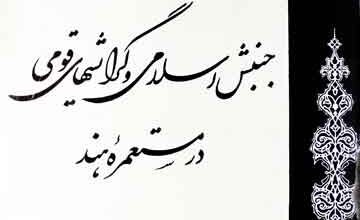 جنبش اسلامی و گرایشهای قومی
در مستعمرهٔ هند